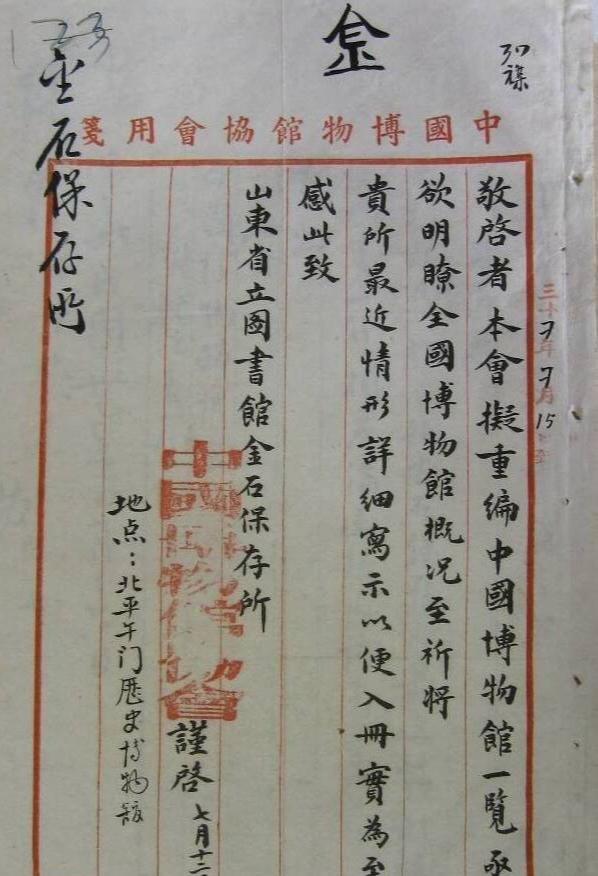 金
中國博物館協會用箋
敬啓者本會擬重編中國博物館一覽亟
欲明瞭全國博物館概况至祈將
貴所最近情形詳細寫示以便入冊實為至
感此致
山東省立圖書館金石保存所
中國博物館協會
謹啓 七月十二
地点：北平午门歷史博物館
金石保存所
三十 年 月 15